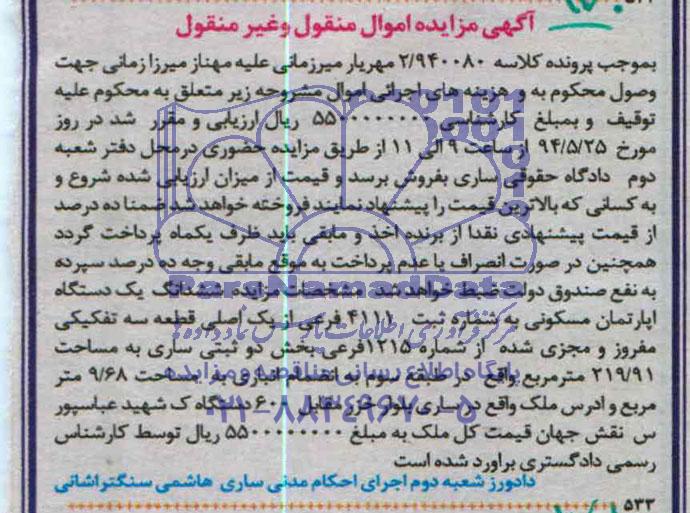 آگهی مزایده اموال منقول وغیر منقول
بموجب پرونده کلاسه ۲/۹۴۰۰۸۰ مهریار میرزمانی علیه مهناز میرزا زمانی جهت
وصول محکوم به و هزینه های اجرائی اموال مشروحه زیر متعلق به محکوم علیه
توقیف و بمبلغ کارشناسی ۵۵۰۰۰۰۰۰۰۰ ریال ارزیابی و مقرر شد در روز
مورخ ۹۴/۵/۲۵ از ساعت ۹ الی ۱۱ از طریق مزایده حضوری درمحل دفتر شعبه
دوم دادگاه حقوقی ساری بفروش برسد و قیمت از میزان ارزیابی شده شروع و
به کسانی که بالاترین قیمت را پیشنهاد نمایند فروخته خواهد شد ضمنا ده درصد
از قیمت پیشنهادی نقدا از برنده اخذ و مابقی باید ظرف یکماه پرداخت گردد
همچنین در صورت انصراف یا عدم پرداخت به موقع مابقی وجه ده درصد سپرده
به نفع صندوق دولت ضبط خواهد شد مشخصات مزایده ششدانگ یک دستگاه
اپارتمان مسکونی به شماره ثبت ۴۱۱۱ فرعی از یک اصلی قطعه سه تفکیکی
مفروز و مجزی شده از شماره ۱۲۱۵فرعی بخش دو ثبتی ساری به مساحت
۲۱۹/۹۱ مترمربع واقع در طبقه سوم به انضمام انباری به مساحت ۹/۶۸ متر
مربع و ادرس ملک واقع در ساری بلوار خزر مقابل ۶۰۰ دستگاه ک شهید عباسپور
س نقش جهان قیمت کل ملک به مبلغ ۵۵۰۰۰۰۰۰۰۰ ریال توسط کارشناس
رسمی دادگستری براورد شده است
دادورز شعبه دوم اجرای احکام مدنی ساری هاشمی سنگتراشانی
۵۳۳
ParsNamadData
پایگاه اطلاع رسانی مناقصه و مزایده
۰۲۱-۸۸۳۴۹۶۷۰-۵